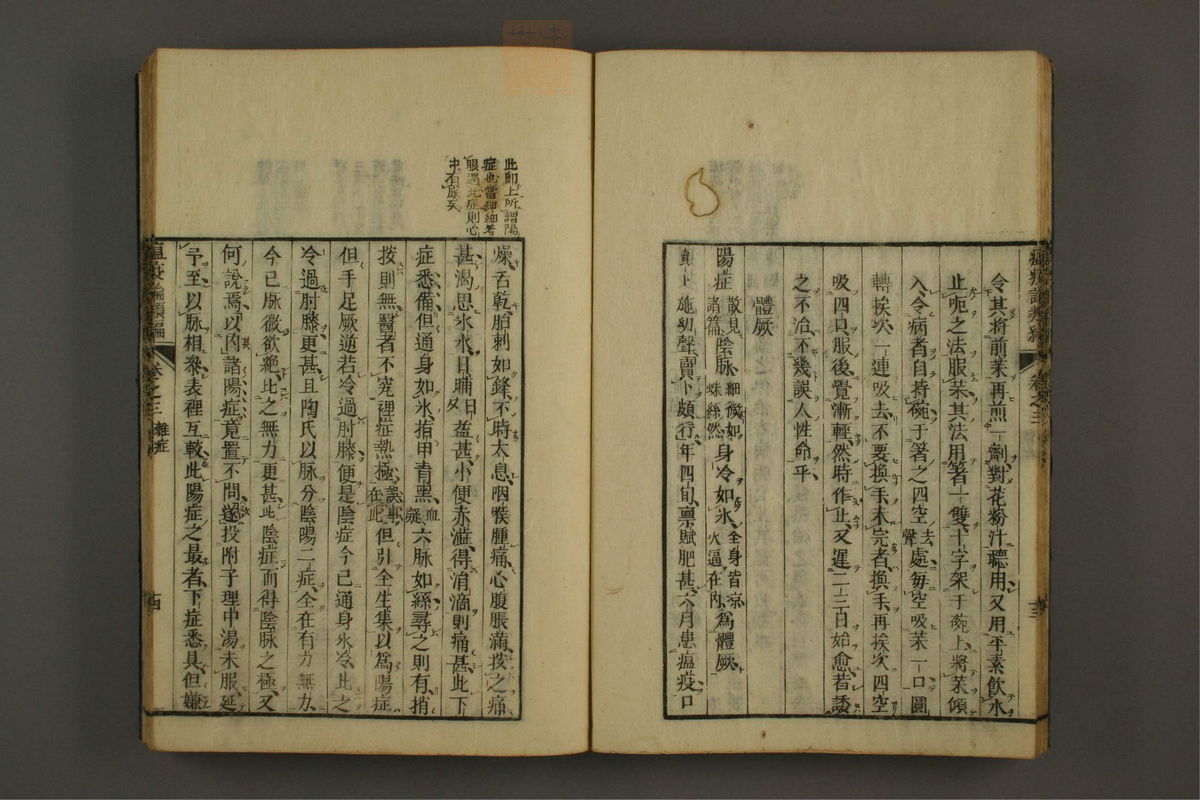 令其將前茶再煎一劑對花粉汁聽用又用平素飲水
止呃之法服茶其法用箸一雙十字架于碗上將茶傾
入令病者自持碗于箸之四空去聲處每空吸茶一口圓
轉挨次一連吸去不要換手未完者換手再挨次四空
吸四口服後覺漸輕然時作止又遲二三日始愈若諉
之不治不幾誤人性命乎
體厥
陽症散見諸篇陰脉細微如蛛絲然身冷如氷全身皆凉火逼在內爲體厥
施幼聲賣卜頗行年四旬稟賦肥甚六月患瘟疫口
瘟疫論類編 卷之三 雜症 十四
燥舌乾胎刺如鋒不時太息咽喉腫痛心腹脹滿按之痛
甚渴思氷水日晡益甚小便赤澁得涓滴則痛甚此下
症悉備但通身如氷指甲青黑血凝六脉如絲尋之則有稍
按則無醫者不究裡症熱極誤事在此但引全生集以爲陽症
但手足厥逆若冷過肘膝便是陰症今已通身氷冷比之
冷過肘膝更甚且陶氏以脉分陰陽二症全在有力無力
今已脉微欲絶比之無力更甚此陰症而得陰脉之極又
何說焉以內諸陽症竟置不問遂投附子理中湯未服延
予至以脉相叅表裡互較此陽症之最者下症悉具但嫌
此即上所謂陽
症也當細細考
眼遇此症則心
中有底矣